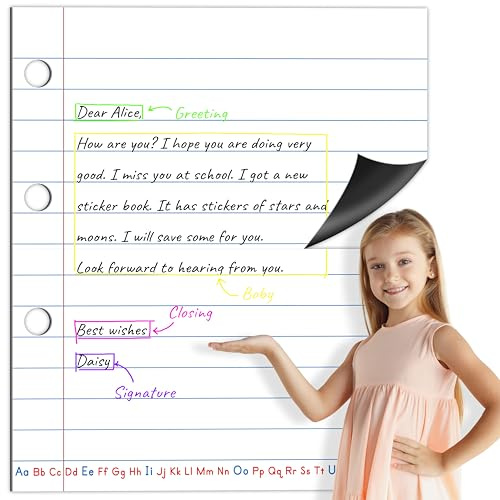 Dear Alice, Greeting
How are you? I hope you are doing very
good. I miss you at school. I got a new
sticker book. It has stickers of stars and
moons. I will save some for you.
Look forward to hearing from you.
Boby
Closing
Best wishes
Daisy
Signature
Aa Bb Cc Dd Ee Ff Gg Hh Ii Jj Kk Ll Mm Nn Oo Pp Qq Rr Ss Tt U